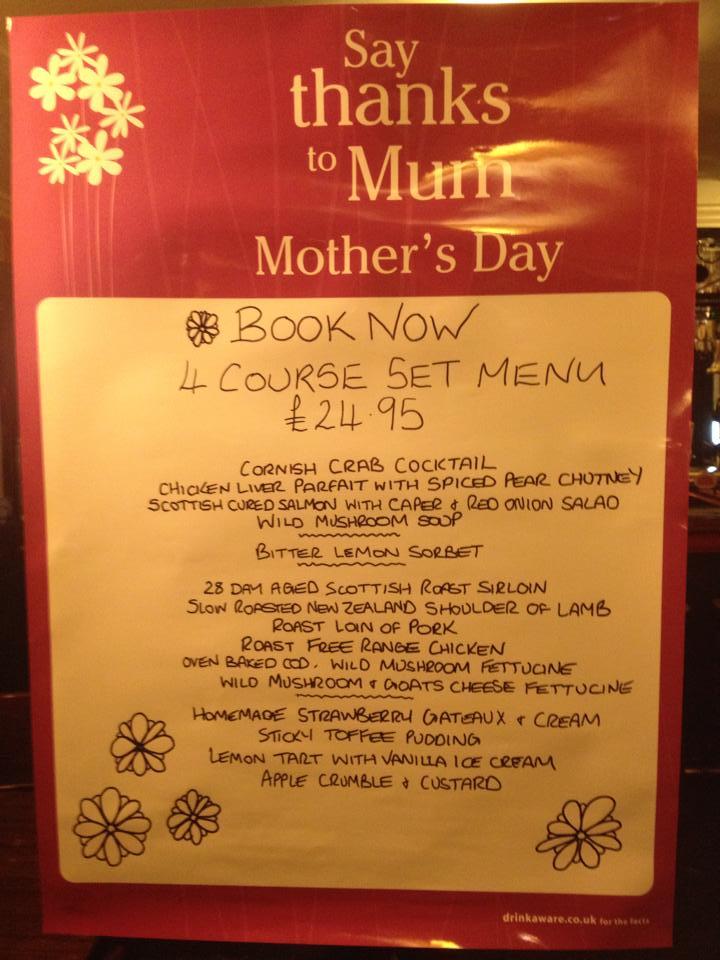 Say
thanks
to Mum
Mother's Day
BOOK NOW
4 COURSE SET MENU
£24.95
CORNISH CRAB COCKTAIL
CHICKEN LIVER PARFAIT WITH SPICED PEAR CHUTNEY
SCOTTISH CURED SALMON WITH CAPER & RED ONION SALAD
WILD MUSHROOM SOUP
BITTER LEMON SORBET
28 DAY AGED SCOTTISH ROAST SIRLOIN
SLOW ROASTED NEW ZEALAND SHOULDER OF LAMB
ROAST LOIN OF PORK
ROAST FREE RANGE CHICKEN
OVEN BAKED COD. WILD MUSHROOM FETTUCINE
WILD MUSHROOM & GOATS CHEESE FETTUCINE
HOMEMADE STRAWBERRY GATEAUX & CREAM
STICKY TOFFEE PUDDING
LEMON TART WITH VANILLA ICE CREAM
APPLE CRUMBLE & CUSTARD
drinkaware.co.uk for the facts